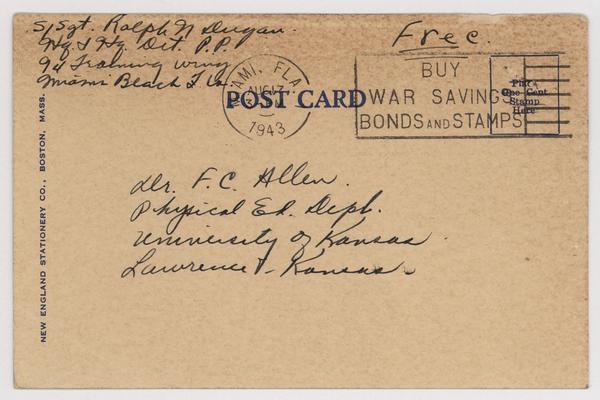 S/Sgt. Ralph N Dugan.
Hq. & Hq. Det. P.P.
94 Training Wing
Miami Beach Fla
Free.
AMI, FLA
AUG 17
1943
BUY
WAR SAVINGS
BONDS AND STAMPS
Place
One Cent
Stamp
Here
POST CARD
Dr. F. C. Allen.
Physical Ed. Dept.
University of Kansas
Lawrence, Kansas
NEW ENGLAND STATIONERY CO., BOSTON, MASS.